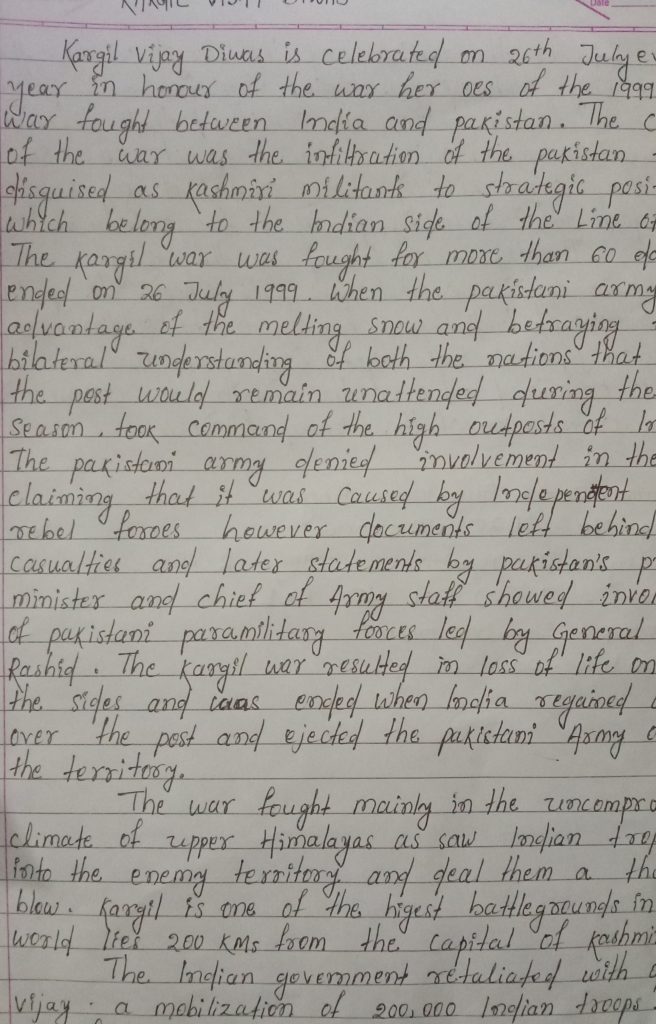 KARGIL VIJAY DIWAS
Date
Kargil Vijay Diwas is celebrated on 26th July
year in honour of the war her oes of the 1999
war fought between India and pakistan. The
of the war was the infiltration of the pakistan
disguised as kashmiri militants to strategic posi-
which belong to the Indian side of the Line of
The kargil war was fought for more than 60
ended on 26 July 1999. When the pakistani army
advantage of the melting snow and betraying
bilateral understanding of both the nations that
the post would remain unattended during the
season, took command of the high outposts of
The pakistani army denied involvement in the
claiming that it was caused by Independent
rebel forces however documents left behind
casualties and later statements by pakistan's
minister and chief of Army staff showed invol
of pakistani paramilitary forces led by General
Rashid. The Kargil war resulted in loss of life on
the sides and was ended when India regained
over the post and ejected the pakistani Army
the territory.
The war fought mainly in the uncompro
climate of upper Himalayas as saw Indian
into the enemy territory and deal them a
blow. Kargil is one of the higest battlegrounds in
world lies 200 KMs from the capital of kashmi
The Indian government retaliated with
Vijay. a mobilization of 200,000 Indian troops.